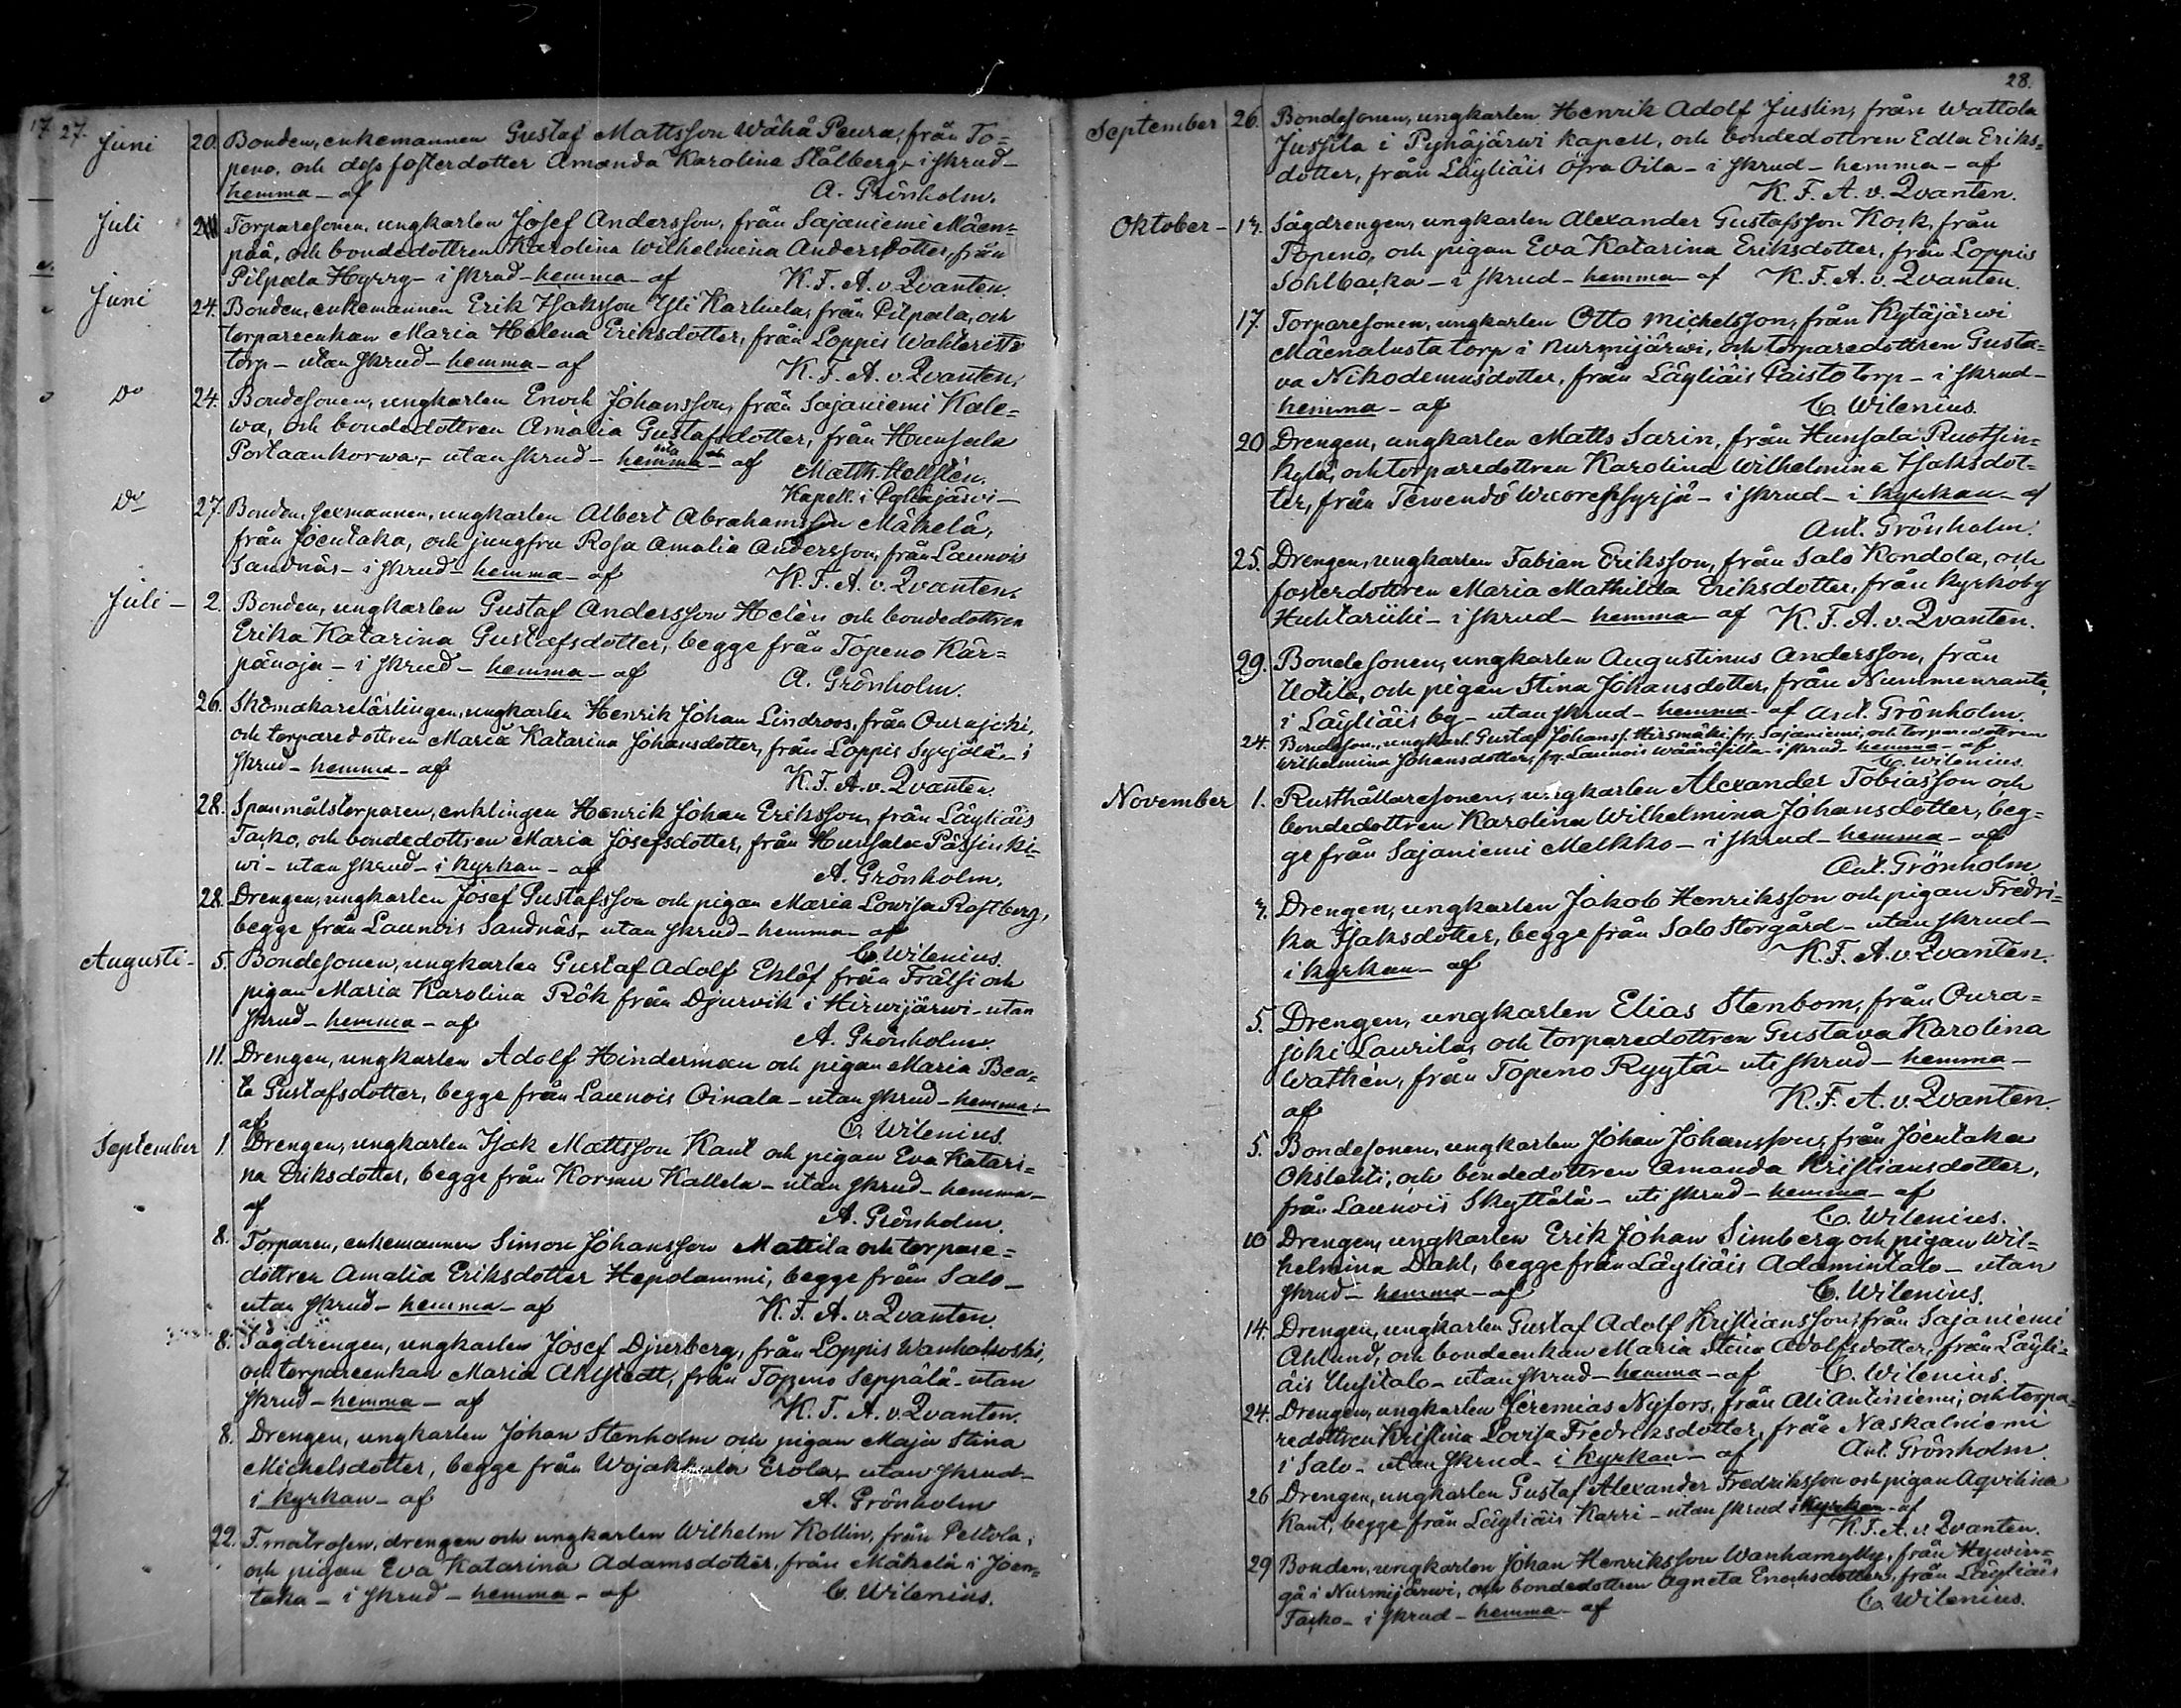 27.
Juni 20. Bonden, enkemannen Gustaf Mattsson Wähä Peura, från To=
peno, och dess fosterdotter Amanda Karolina Stålberg - i skrud -
hemma - af A. Grönholm.
Juli Torparesonen, ungkarlen Josef Andersson, från Sajaniemi Mäen=
pää, och bondedottren Karolina Wilhelmina Andersdotter, från
Pilpala Hyrry - i skrud - hemma - af K. F. A. v. Qvanten.
Juni 24. Bonden, enkemannen Erik Isaksson Yli Karhula, från Pilpala, och
torpareenkan Maria Helena Eriksdotter, från Loppis Wahteristo
torp - utan skrud - hemma - af K. F. A. v. Qvanten.
Do 24. Bondesonen, ungkarlen Enoch Johansson, från Sajaniemi Kale=
wa, och bondedottren Amalia Gustafsdotter, från Hunsala
Portaankorwa, - utan skrud - hemma - af Matth. Hellstén.
Kapell. i Pyhäjärwi -
Do 27. Bonden, sexmannen, ungkarlen Albert Abrahamsson Mäkelä,
från Joentaka, och jungfru Rosa Amalia Andersson, från Launois
Sandnäs - i skrud - hemma - af K. F. A. v. Qvanten.
Juli - 2. Bonden, ungkarlen Gustaf Andersson Helén och bondedottren
Erika Katarina Gustafsdotter, begge från Topeno Kär=
pänoja - i skrud - hemma - af A. Grönholm.
26. Skomakarelärlingen, ungkarlen Henrik Johan Lindroos, från Ourajoki,
och torparedottren Maria Katarina Johansdotter, från Loppis Syrjälä - i
skrud - hemma - af K. F. A. v. Qvanten.
28. Spanmålstorparen, enklingen Henrik Johan Eriksson, från Läyliäis
Tarko, och bondedottren Maria Josefsdotter, från Hunsala Pässinki=
wi - utan skrud - i kyrkan - af A. Grönholm.
28. Drengen, ungkarlen Josef Gustafsson och pigan Maria Lowisa Rostberg,
begge från Launois Sandnäs, - utan skrud - hemma - af
C. Wilenius.
Augusti - 5. Bondesonen, ungkarlen Gustaf Adolf Eklöf från Frälsi och
pigan Maria Karolina Rök från Djurvik i Hirwijärwi - utan
skrud - hemma - af A. Grönholm.
11. Drengen, ungkarlen Adolf Hinderman och pigan Maria Bea=
ta Gustafsdotter, begge från Launois Oinala - utan skrud - hemma -
af C. Wilenius.
September 1. Drengen, ungkarlen Isak Mattsson Kant och pigan Eva Katari=
na Eriksdotter, begge från Kormu Kallela - utan skrud - hemma -
af A. Grönholm.
8. Torparen, enkemannen Simon Johansson Mattila och torpare=
dottren Amalia Eriksdotter Hepolammi, begge från Salo -
utan skrud - hemma - af K. F. A. v. Qvanten.
8. Sågdrengen, ungkarlen Josef Djurberg, från Loppis Wanhakoski,
och torpareenkan Maria Ahlstedt, från Topeno Seppälä - utan
skrud - hemma - af K. F. A. v. Qvanten.
8. Drengen, ungkarlen Johan Stenholm och pigan Maja Stina
Michelsdotter, begge från Wojakkala Erola, - utan skrud -
i kyrkan - af A. Grönholm
22. F. matrosen, drengen och ungkarlen Wilhelm Kollin, från Peltola,
och pigan Eva Katarina Adamsdotter, från Mäkelä i Joen=
taka - i skrud - hemma - af C. Wilenius.
28.
September 26. Bondesonen, ungkarlen Henrik Adolf Juslin, från Wattola
Jussila i Pyhäjärwi kapell, och bondedottren Edla Eriks=
dotter, från Läyliäis Öfra Oila - i skrud - hemma - af
K. F. A. v. Qvanten.
Oktober - 13. Sågdrengen, ungkarlen Alexander Gustafsson Kock, från
Topeno, och pigan Eva Katarina Eriksdotter, från Loppis
Sohlbacka - i skrud - hemma - af K. F. A. v. Qvanten.
17. Torparesonen, ungkarlen Otto Michelsson, från Kytäjärwi
Mäenalusta torp i Nurmijärwi, och torparedottren Gusta=
va Nikodemusdotter, från Läyliäis Paisto torp - i skrud -
hemma - af C. Wilenius.
20 Drengen, ungkarlen Matts Sarin, från Hunsala Ruotsin=
kylä, och torparedottren Karolina Wilhelmina Isaksdot=
ter, från Terwendö - i skrud - i kyrkan - af
Ant. Grönholm.
25. Drengen, ungkarlen Fabian Eriksson, från Salo Kondola, och
fosterdottren Maria Mathilda Eriksdotter, från Kyrkoby
Huhtariihi - i skrud - hemma - af K. F. A. v. Qvanten.
29. Bondesonen, ungkarlen Augustinus Andersson, från
Uotila, och pigan Stina Johansdotter, från Nummenranta,
i Läyliäis by - utan skrud - hemma - af Ant. Grönholm.
24. Bondeson., ungkarl. Gustaf Johanss. Hirsmäki, fr. Sajaniemi, och torparedottren
Wilhelmina Johansdotter, fr. Launois Wääräsilta - i skrud - hemma - af
C. Wilenius.
November 1. Rusthållaresonen, ungkarlen Alexander Tobiasson och
bondedottren Karolina Wilhelmina Johansdotter, beg=
ge från Sajaniemi Melkko - i skrud - hemma - af
Ant. Grönholm
3. Drengen, ungkarlen Jakob Henriksson och pigan Fredri=
ka Isaksdotter, begge från Salo Storgård - utan skrud -
i kyrkan - af K. F. A. v. Qvanten.
5. Drengen, ungkarlen Elias Stenbom, från Oura=
joki Laurila, och torparedottren Gustava Karolina
Wathén, från Topeno Ryytä - uti skrud - hemma -
af K. F. A. v. Qvanten.
5. Bondesonen, ungkarlen Johan Johansson, från Joentaka
Okslahti, och bondedottren Amanda Kristiansdotter,
från Launois Skyttälä - uti skrud - hemma - af
C. Wilenius.
10 Drengen, ungkarlen Erik Johan Simberg och pigan Wil=
helmina Dahl, begge från Läyliäis Adamintalo - utan
skrud - hemma - af C. Wilenius.
14. Drengen, ungkarlen Gustaf Adolf Kristiansson, från Sajaniemi
Ahlund, och bondeenkan Maria Stina Adolfsdotter, från Läyli=
äis Uusitalo - utan skrud - hemma - af C. Wilenius.
24. Drengen, ungkarlen Jeremias Nyfors, från Ali Antiniemi, och torpa=
redottren Kristina Lovisa Fredriksdotter, från Naskalniemi
i Salo - utan skrud - i kyrkan - af Ant. Grönholm.
26 Drengen, ungkarlen Gustaf Alexander Fredriksson och pigan Aqvilina
Kant, begge från Läyliäis Karri - utan skrud i kyrkan - af
K. F. A. v. Qvanten.
29 Bonden, ungkarlen Johan Henriksson Wanhamylly, från Hywin=
gä i Nurmijärwi, och bondedottren Agneta Enochsdotter, från Läyliäis
Tarko - i skrud - hemma - af C. Wilenius.